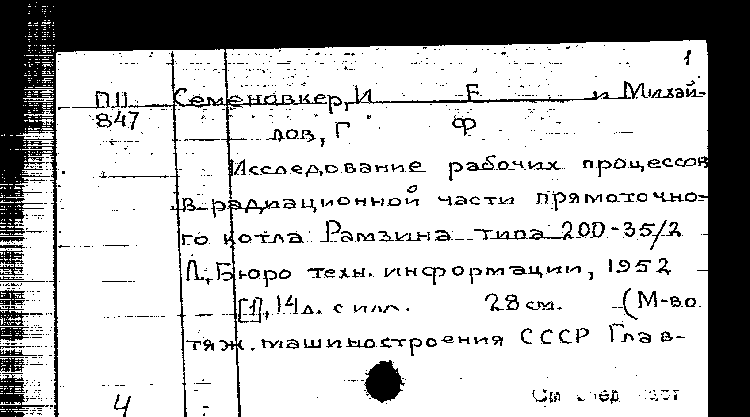 1
П.П. Семеновкер, И Е и Михай-
847 лов, Г Ф
Исследование рабочих процессов
в радиационной части прямоточно-
го котла Рамзина типа 200-35/2
Л., Бюро техн. информации, 1952
[1], 14 л. с илл. 28 см. (М-во
тяж. машиностроения СССР Глав-
4 См след